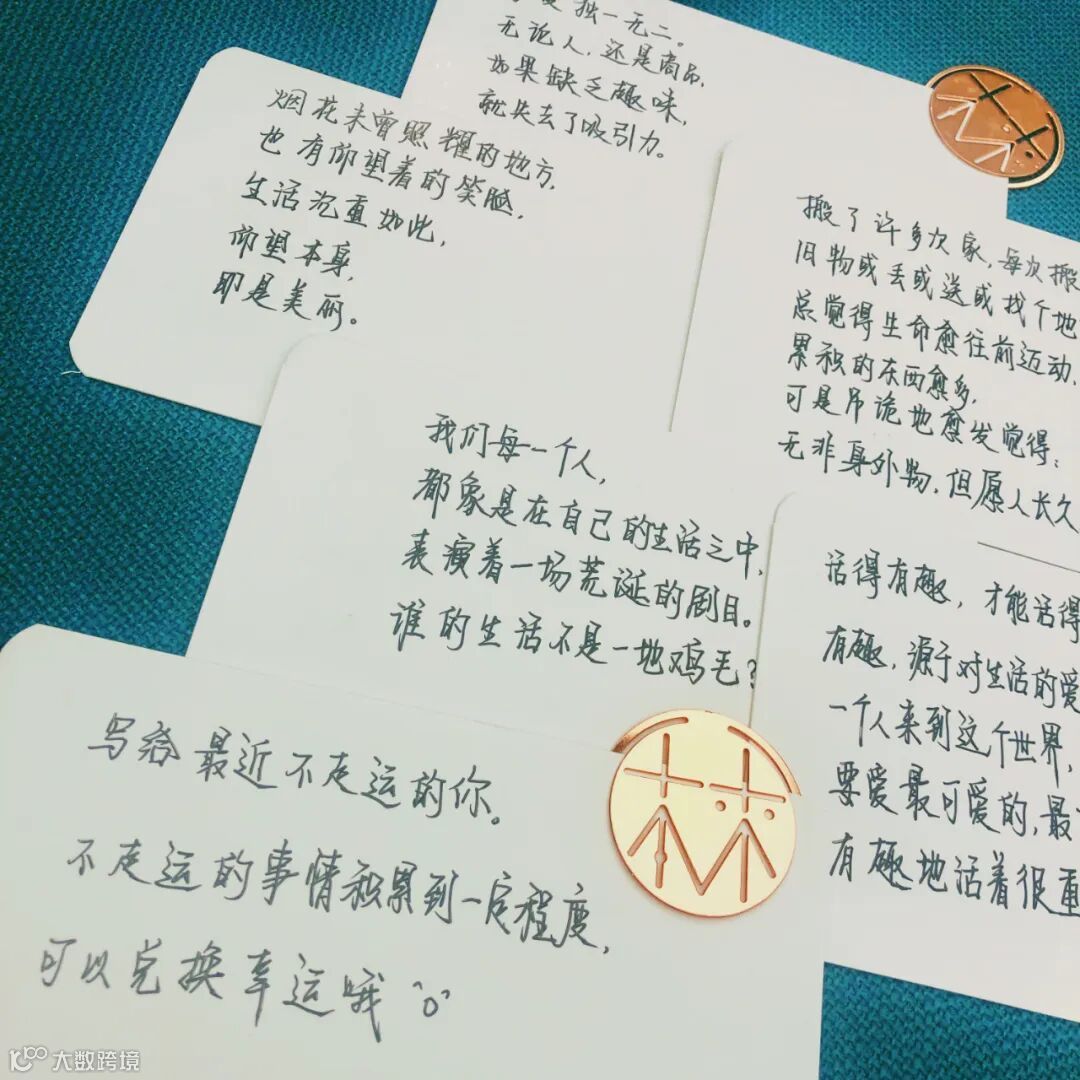 独一无二。
无论人,还是商品,
如果缺乏趣味,
就失去了吸引力。
烟花未曾照耀的地方,
也有仰望着的笑脸,
生活沉重如此,
仰望本身,
即是美丽。
搬了许多次家,每次搬
旧物或丢或送或找个地
总觉得生命愈往前迈动,
累积的东西愈多,
可是吊诡地愈发觉得:
无非身外物,但愿人长久
我们每一个人,
都象是在自己的生活之中,
表演着一场荒诞的剧目。
谁的生活不是一地鸡毛?
活得有趣,才能活得
有趣,源于对生活的爱
一个人来到这个世界,
要爱最可爱的,最
有趣地活着很重
写给最近不走运的你。
不走运的事情积累到一定程度,
可以兑换幸运哦^o^
大数跨境